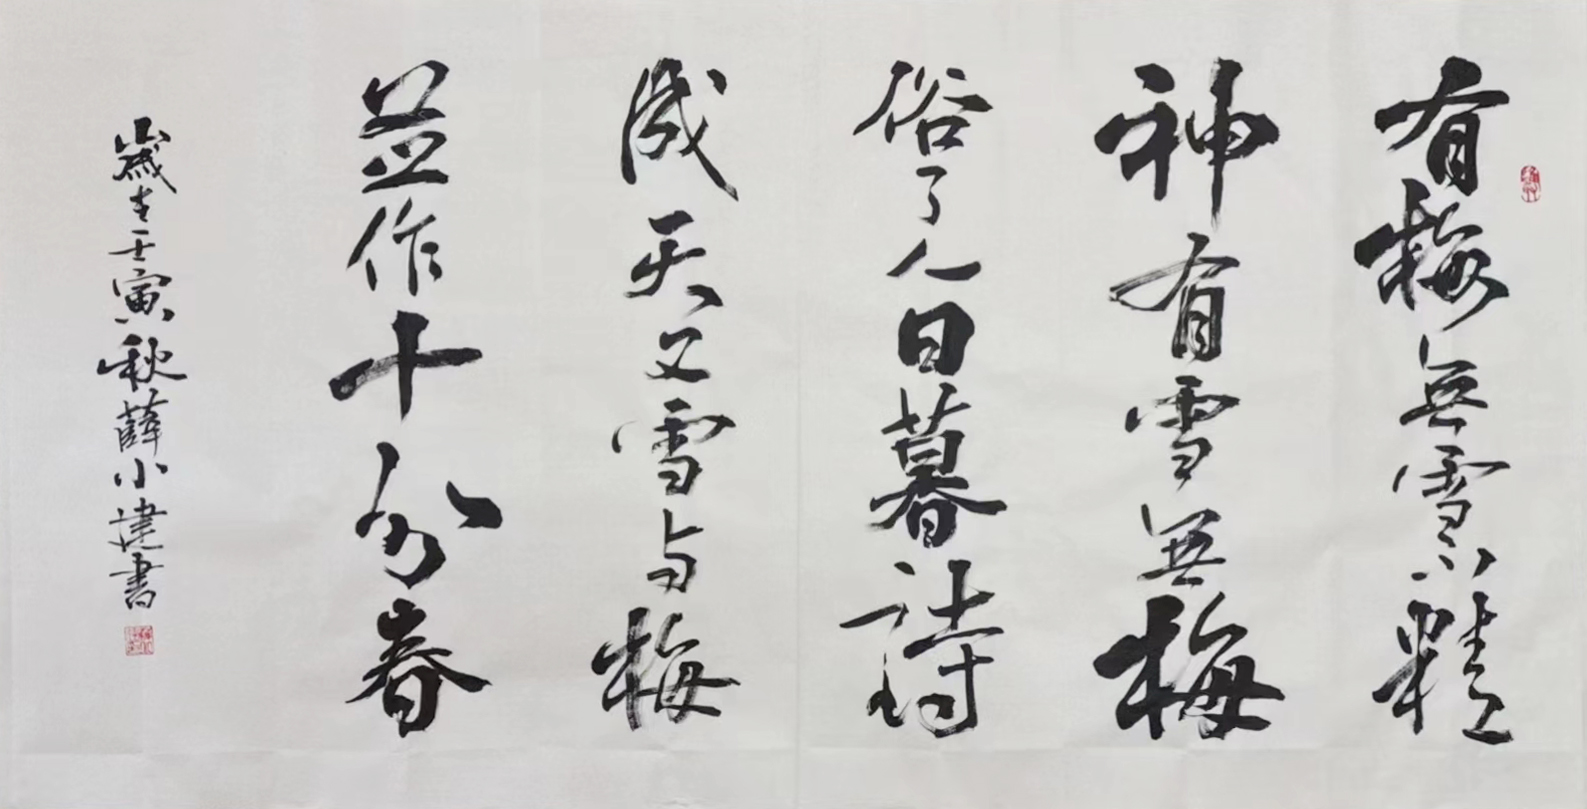 有梅無雪不精
神有雪無梅
俗了人日暮詩
成天又雪与梅
並作十分春
歲在壬寅秋薛小建書